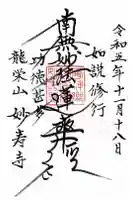 令和五年十一月十八日
如説修行
南無妙法蓮華経
功徳甚多
龍栄山 妙寿寺